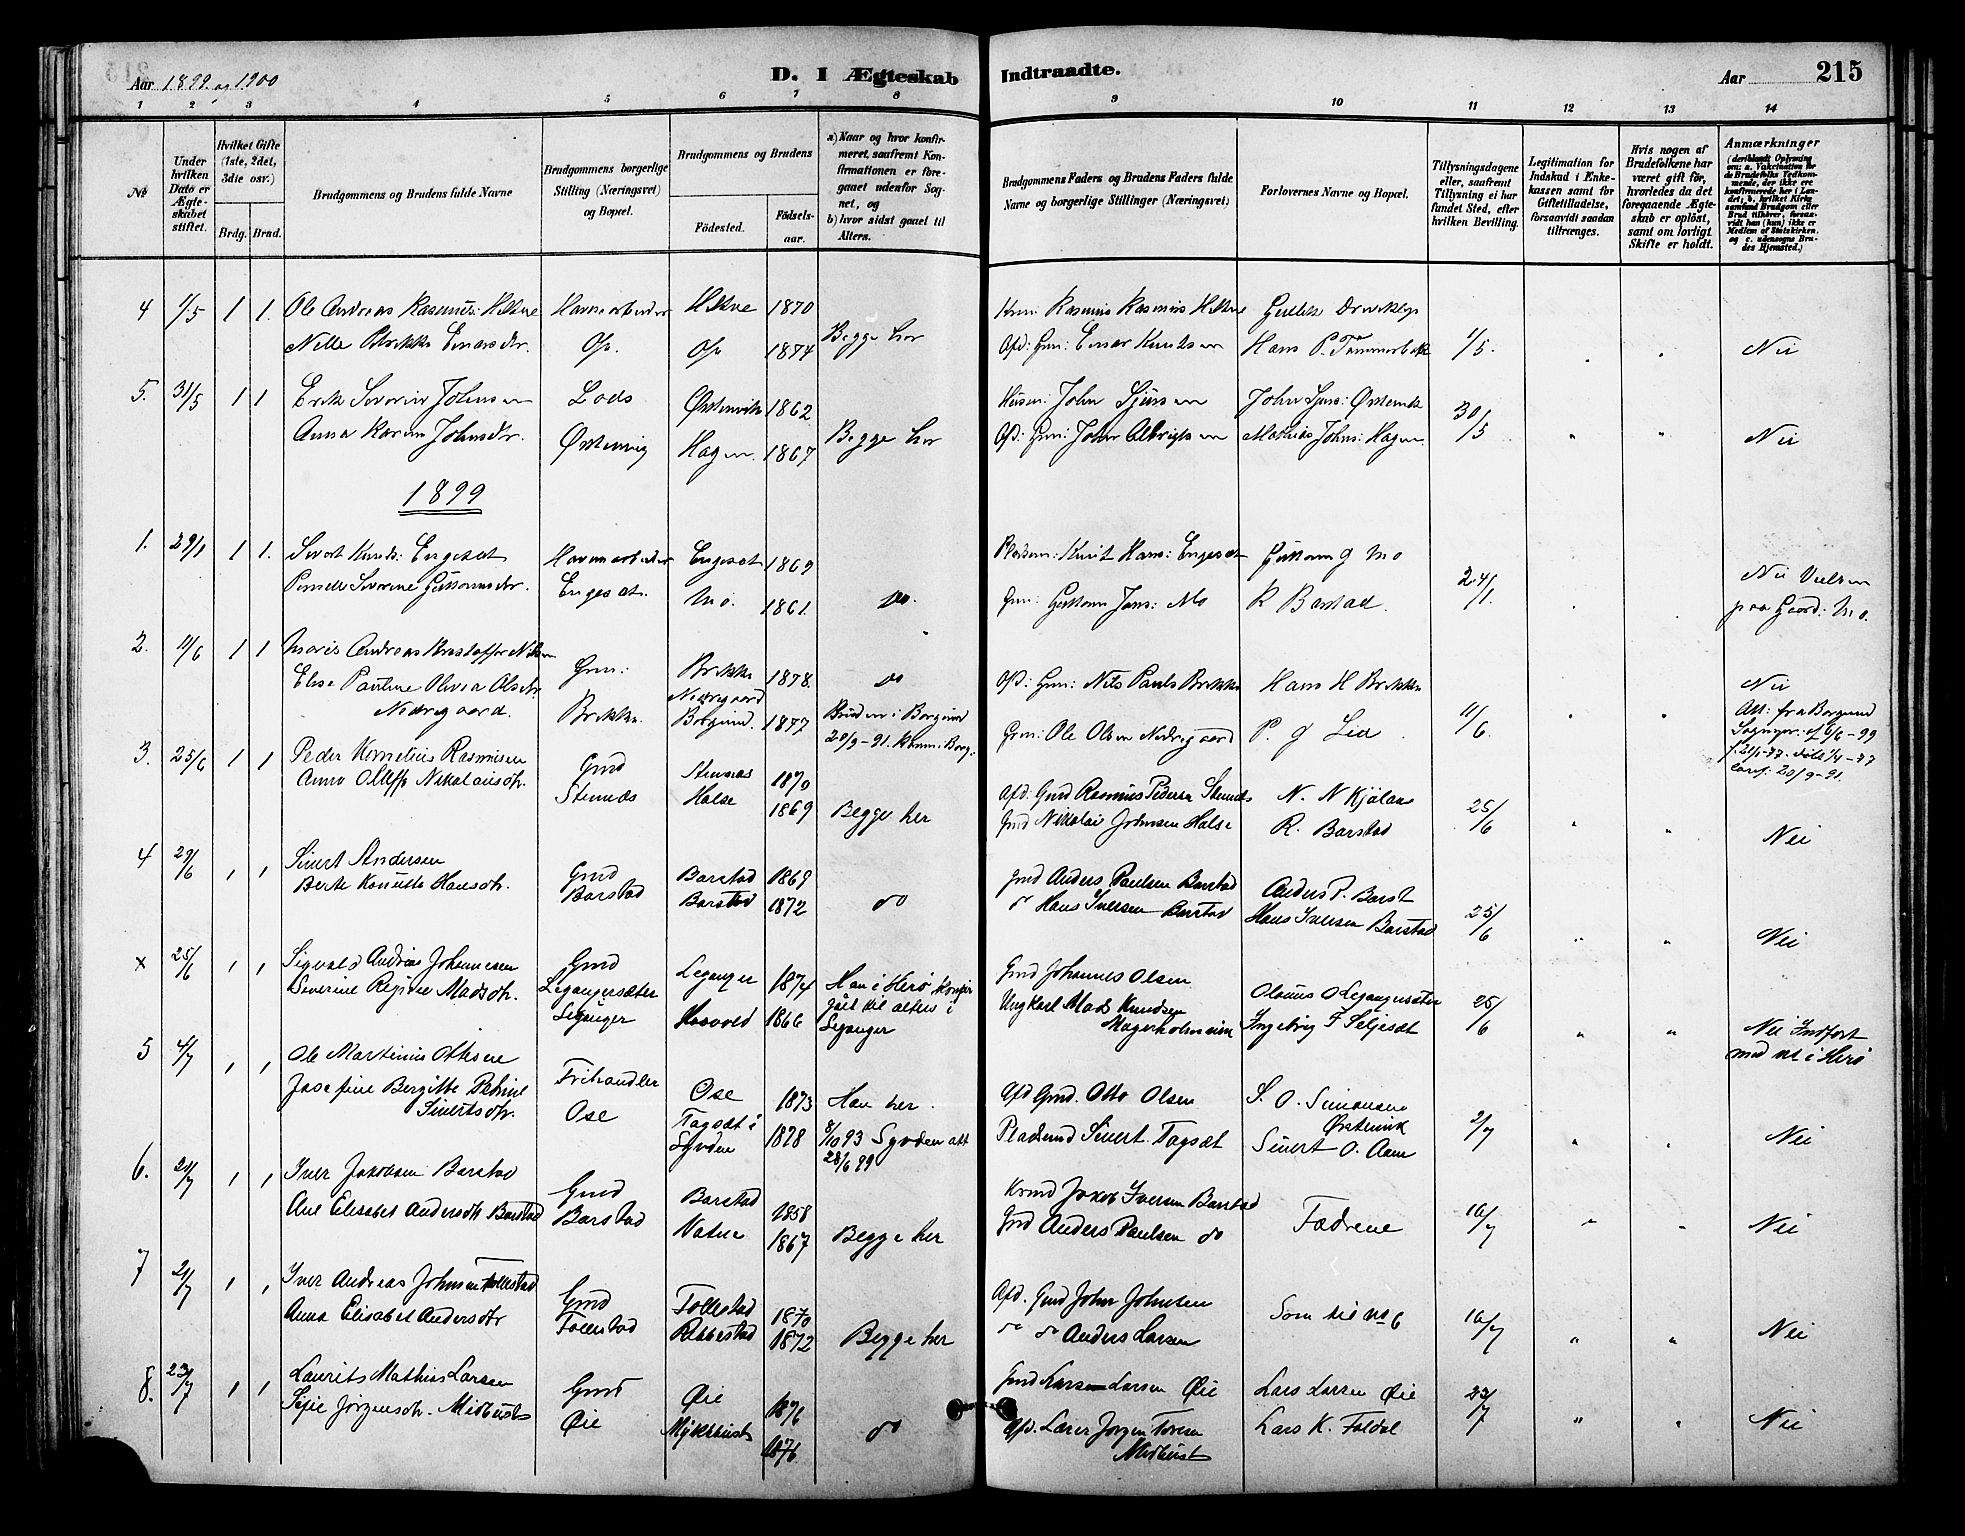 Aar 1899 og 1900
D. I Ægteskab Indtraadte.
Aar 215
1 2 3 4 5 6 7 8 9 10 11 12 13 14
No
Under hvilken Dato er Ægteskabet stiftet.
Hvilket Gifte (1ste, 2det, 3die osv.)
Brdg. Brud.
Brudgommens og Brudens fulde Navne
Brudgommens borgerlige Stilling (Næringsvei) og Bopæl.
Brudgommens og Brudens
Fødested.
Fødselsaar.
a) Naar og hvor konfirmeret, saafremt Konfirmationen er foregaaet udenfor Sognet, og b) hvor sidst gaaet til Alters.
Brudgommens Faders og Brudens Faders fulde Navne og borgerlige Stillinger (Næringsvei)
Forlovernes Navne og Bopæl.
Tillysningsdagene eller, saafremt Tillysning ei har fundet Sted, efter hvilken Bevilling.
Legitimation for Indskud i Enkekassen samt for Giftetilladelse, forsaavidt saadan tiltrænges.
Hvis nogen af Brudefolkene har været gift før, hvorledes da det foregaaende Ægteskab er opløst, samt om lovligt Skifte er holdt.
Anmærkninger (deriblandt Oplysning om: a. Vakcination for de Brudefolks Vedkommende, der ikke ere konfirmerede her i Landet; b. hvilket Kirkesamfund Brudgom eller Brud tilhører, forsaavidt han (hun) ikke er Medlem af Statskirken, og c. udensogns Brudes Hjemsted.)
4 1/5 1 1. Ole Andreas Rasmus: Havnearbeider 1870
Einarsdr. 1874 Begge her
Rasmus Rasmus
Afd: Gm: Einar Knutsen Hans P. 1/5. Nei
5. 31/5 1 1 Erik Severin Johnsen Lods Østenvik 1862
Anna Karine Johnsdr. Østenvig Hagen. 1867 Begge her
Husm: John Sjursen John Sjurs: Østenvik 30/5
Afd: Gm: John Albrigtsen Mathias Johns: Hagen Nei
1899
1. 29/1 1 1. Sivert Knuts: Engeset Havnearbeider Engeset 1869
Severine Guttormsdr. Engeset. Mo. 1861. do.
Pladsm: Knut Hans: Engeset Guttorm J Mo 24/1.
Gm: Guttorm Jans: Mo R Barstad. Nei Vielsen
paa Gaard: Mo.
2. 11/6 1 1 Andreas Kristoffer Nilsen Gm: Brekke 1878. do
Elise Pauline Olivia Olsdr. Nedregaard. Brekke. Nedregaard Borgund. 1877 Bruden i Borgund
20/9-91. Komm: Borg:
Afd: Gm: Nils Pauls Brekke Hans H Brekke Nei
Gm: Ole Olsen Nedregaard P. J Lid 11/6. Att: fra Borgund
Sognepr: af 6/6-99
conf: 20/9-91.
3. 25/6 1 1 Peder Kornelius Rasmussen Gmd Stennes 1870
Anne Nikolausdtr. Stennes Halse 1869 Begge her
Afd. Gmd Rasmus Pedersen Stennes N. N Kjølaas 25/6
Gmd Nikolai Johnsen Halse R. Barstad Nei
4 29/6 , , Sivert Andersen Gmd Barstad 1869
Berte Hansdtr. Barstad Barstad 1872 do
Gmd Anders Paulsen Barstad Anders P. Barst
do Hans Iversen Barstad Hans Iversen Barstad 25/6 Nei
x 25/6 , , Sigvald Andreas Johannesen Gmd Leganger 1874 Han i Herø
Severine Madsdtr. Legangersæter Leganger 1866 gået til alters i
Leganger
Gmd Johannes Olsen
Ungkarl Mads Knudsen Magerholm Olaus O Legangersæter 25/6
Ingebrig F Seljesæt Nei Indført
med no i Herø
5 4/7 , , Ole Martinus Ottesen Frihandler Ose 1873 Han her.
Josefine Bergitte Petrine Sivertsdtr. Ose Tagsæt i Syvden 1878 8/10 93 Syvden att
28/6 99
Afd Gmd. Otto Olsen S. O. Simonsen Østenvik 2/7
Pladsmd Sivert Tagsæt Sivert O. Aam Nei
6. 21/7 , , Iver Jakobsen Barstad Gmd Barstad 1858
Ane Elisabet Andersdtr Barstad Barstad Vatne 1867 Begge her
Kvmd Jakob Iversen Barstad Fædrene 16/7
Gmd Anders Paulsen do Nei
7 21/7 , , Iver Andreas Johnsen Follestad Gmd Follestad 1870
Anna Elisabet Andersdtr Follestad Ribbestad 1872 Begge her
Afd. Gmd John Johnsen Som ved no 6 16/7
do do Anders Larsen Nei
8. 23/7 , , Laurits Mathias Larsen Gmd Øie 1876
Jørgensdtr. Midbust Øie Myklebust 1876 do
Gmd Lars Larsen Øie Lars Larsen Øie 23/7
Afd. Lærer Jørgen Midbust Lars K. Foldal Nei